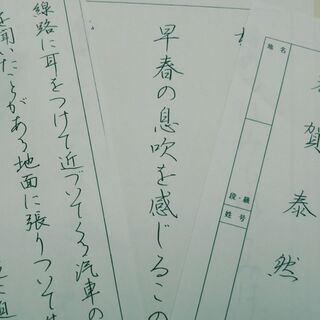 賀泰然
地名
段・級
姓号
早春の息吹を感じるこの
線路に耳をつけて近づいてくる汽車の
を聞いたことがある地面に張りついて